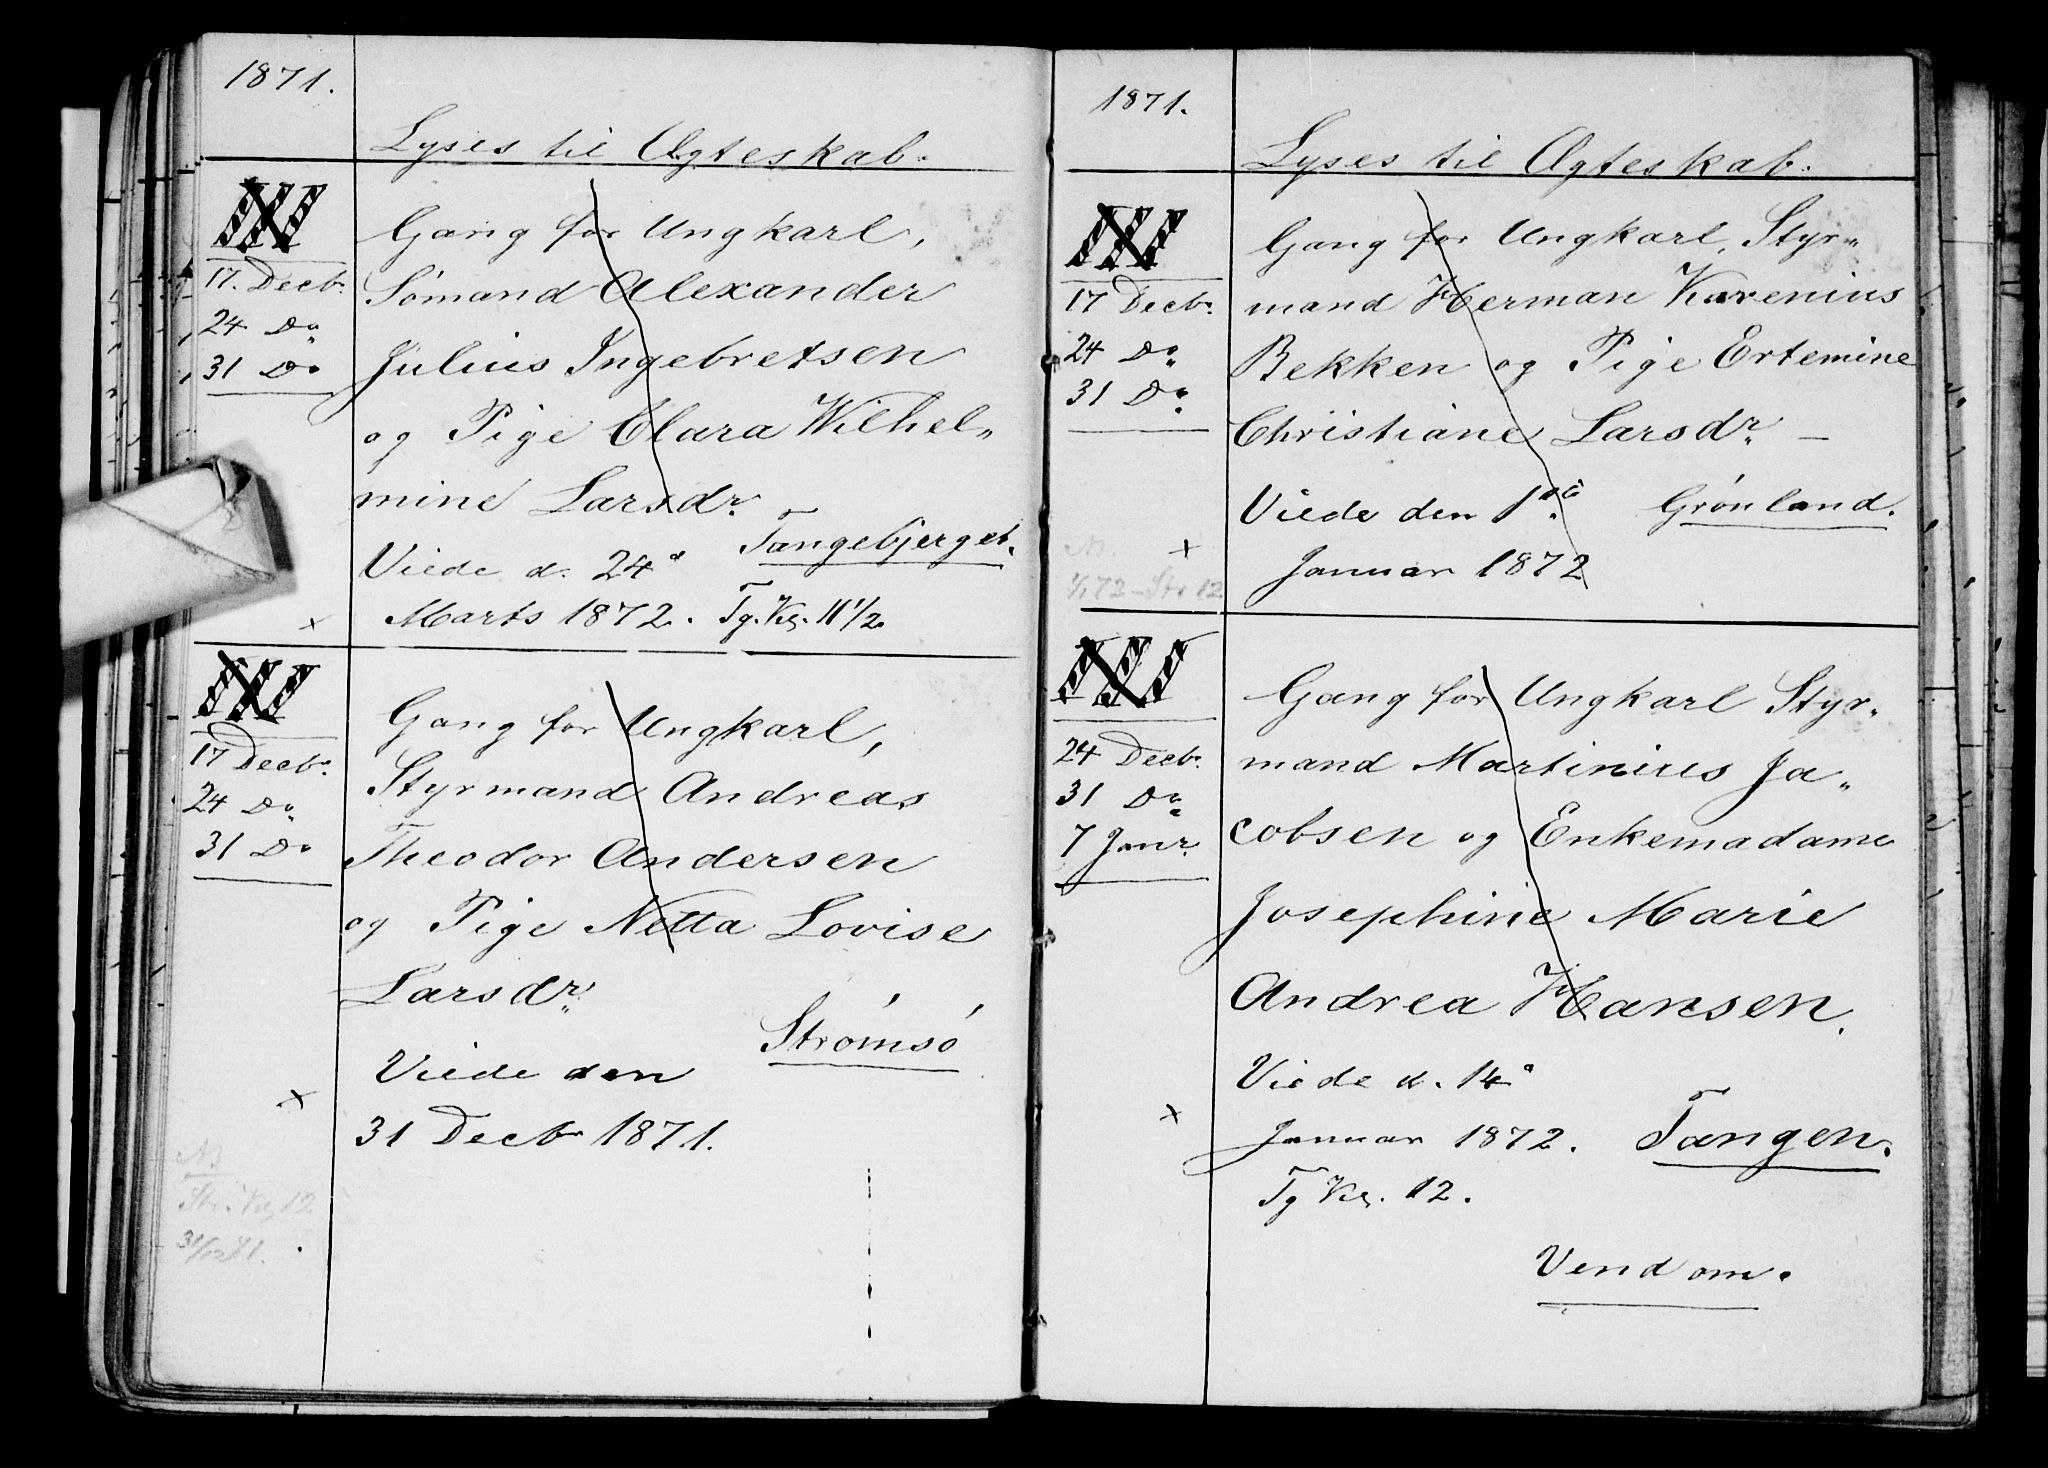 1871.
Lyses til Ægteskab.
III
17. Decbr.
24 Do
31 Do
Gang for Ungkarl,
Sømand Alexander
Julius Ingebretsen
og Pige Clara Wilhel„
mine Larsdr.
Viede d. 24d Tangebjerget.
Marts 1872. Tg. Kl. 11 1/2
x
III
17 Decbr.
24 Do
31 Do
Gang for Ungkarl,
Styrmand Andreas
Theodor Andersen
og Pige Netta Lovise
Larsdr.
Strømsø
Viede den
31 Decbr 1871.
x
31/12 71.
1871.
Lyses til Ægteskab.
III
17 Decbr.
24 Do
31 Do
Gang for Ungkarl, Styr„
mand Herman Karenius
Bekken og Pige Ertemine
Christiane Larsdr. —
Viede den 1ste Grønland.
Januar 1872
x
1/1 72 - Str 12
III
24 Decbr.
31 Do
7 Janr.
Gang for Ungkarl Styr„
mand Martinius Ja„
cobsen og Enkemadame
Josephine Marie
Andrea Hansen.
Viede d. 14d
Januar 1872. Tangen.
Tg Kl. 12.
x
Vend om.